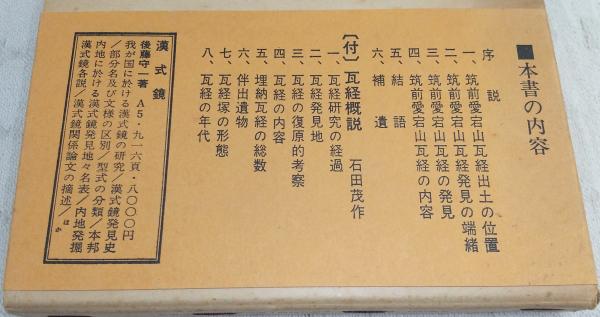 ■本書の内容
序説
一、筑前愛宕山瓦経出土の位置
二、筑前愛宕山瓦経発見の端緒
三、筑前愛宕山瓦経の発見
四、筑前愛宕山瓦経の内容
五、結語
六、補遺
〔付〕瓦経概説 石田茂作
一、瓦経研究の経過
二、瓦経発見地
三、瓦経の復原的考察
四、瓦経の内容
五、埋納瓦経の総数
六、伴出遺物
七、瓦経塚の形態
八、瓦経の年代
漢式鏡
後藤守一著 A5・九一六頁・八〇〇〇円
我が国に於ける漢式鏡の研究/漢式鏡発見史
/部分名及び文様の区別/型式の分類/本邦
内地に於ける漢式鏡発見地々名表/内地発掘
漢式鏡各説/漢式鏡関係論文の摘述/ほか